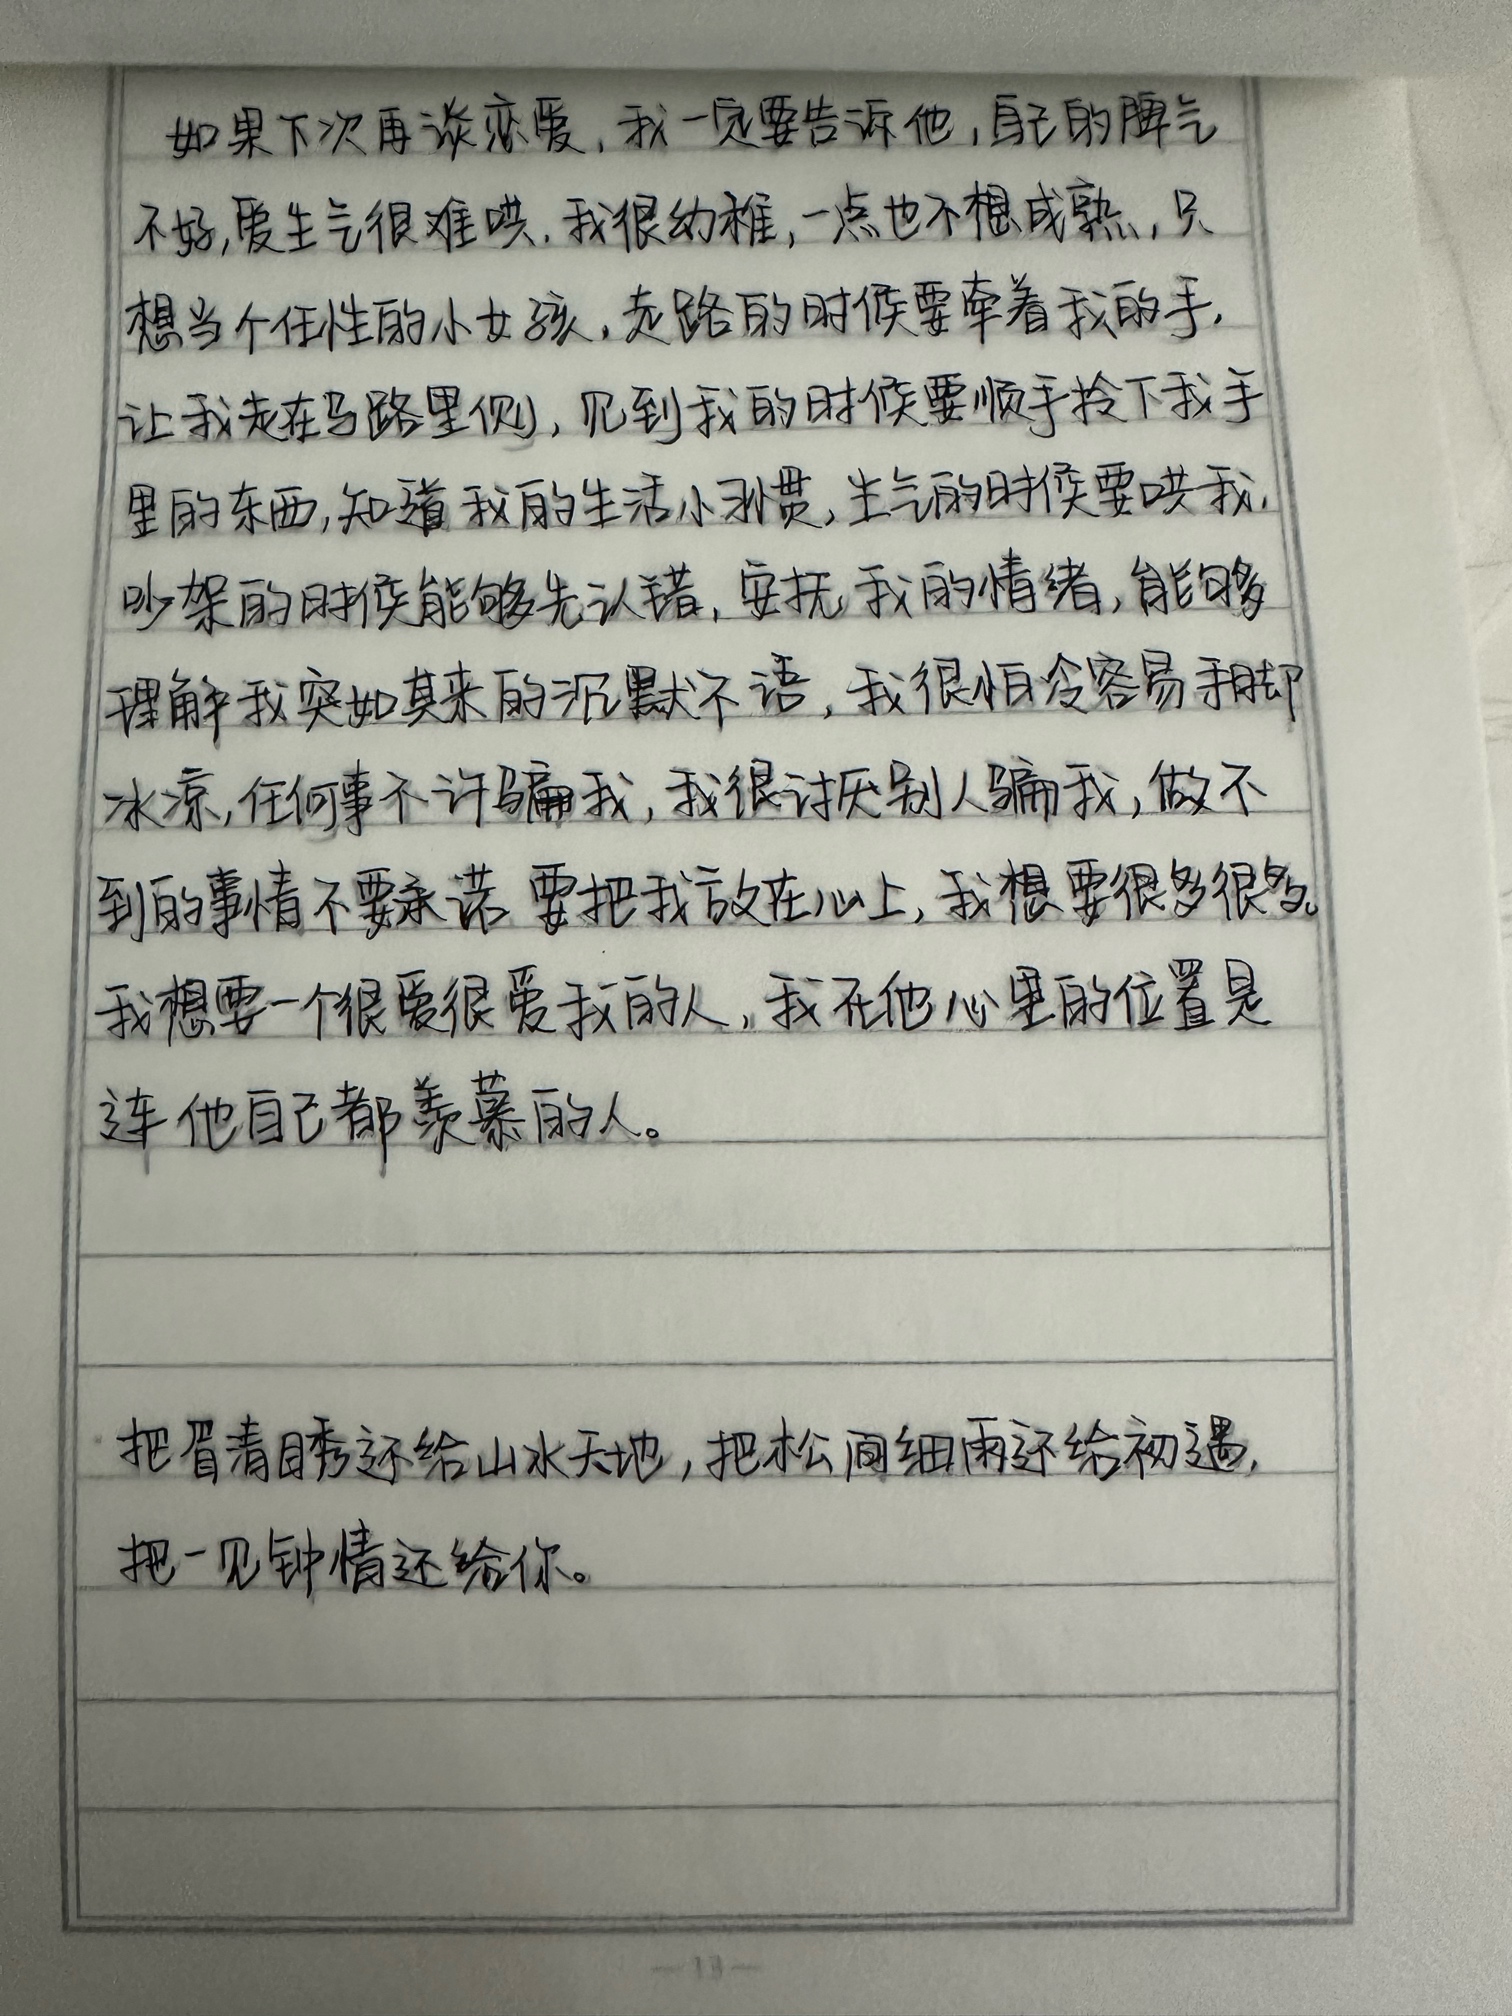 如果下次再谈恋爱，我一定要告诉他，自己的脾气
不好，爱生气很难哄，我很幼稚，一点也不想成熟，只
想当个任性的小女孩，走路的时候要牵着我的手，
让我走在马路里侧，见到我的时候要顺手拎下我手
里的东西，知道我的生活小习惯，生气的时候要哄我，
吵架的时候能够先认错，安抚我的情绪，能够
理解我突如其来的沉默不语，我很怕冷容易手脚
冰凉，任何事不许骗我，我很讨厌别人骗我，做不
到的事情不要承诺 要把我放在心上，我想要很多很多。
我想要一个很爱很爱我的人，我在他心里的位置是
连他自己都羡慕的人。
把眉清目秀还给山水天地，把松间细雨还给初遇，
把一见钟情还给你。
— 13 —